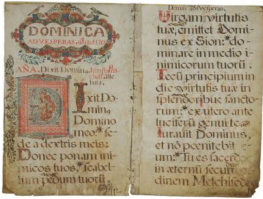 DOMINICA
AD VESPERAS
AÑA. Dixit Dominus
Ixit Do
minus
Domino
meo: se
de a dextris meis:
Donec ponam ini
micos tuos, scabel
lum pedum tuorũ.
Domin. ad Vesperas.
Virgam virtutis
tuæ, emittet Domi
nus ex Sion: do
minare in medio i
nimicorum tuorũ.
Tecũ principium in
die virtutis tuæ in
splendoribus sancto
rum: ex utero ante
luciferũ genui te.
Iuravit Dominus,
et nõ pœnitebit
eum: Tu es sacer
dos in æternũ secun
dum ordinem Melchisedec